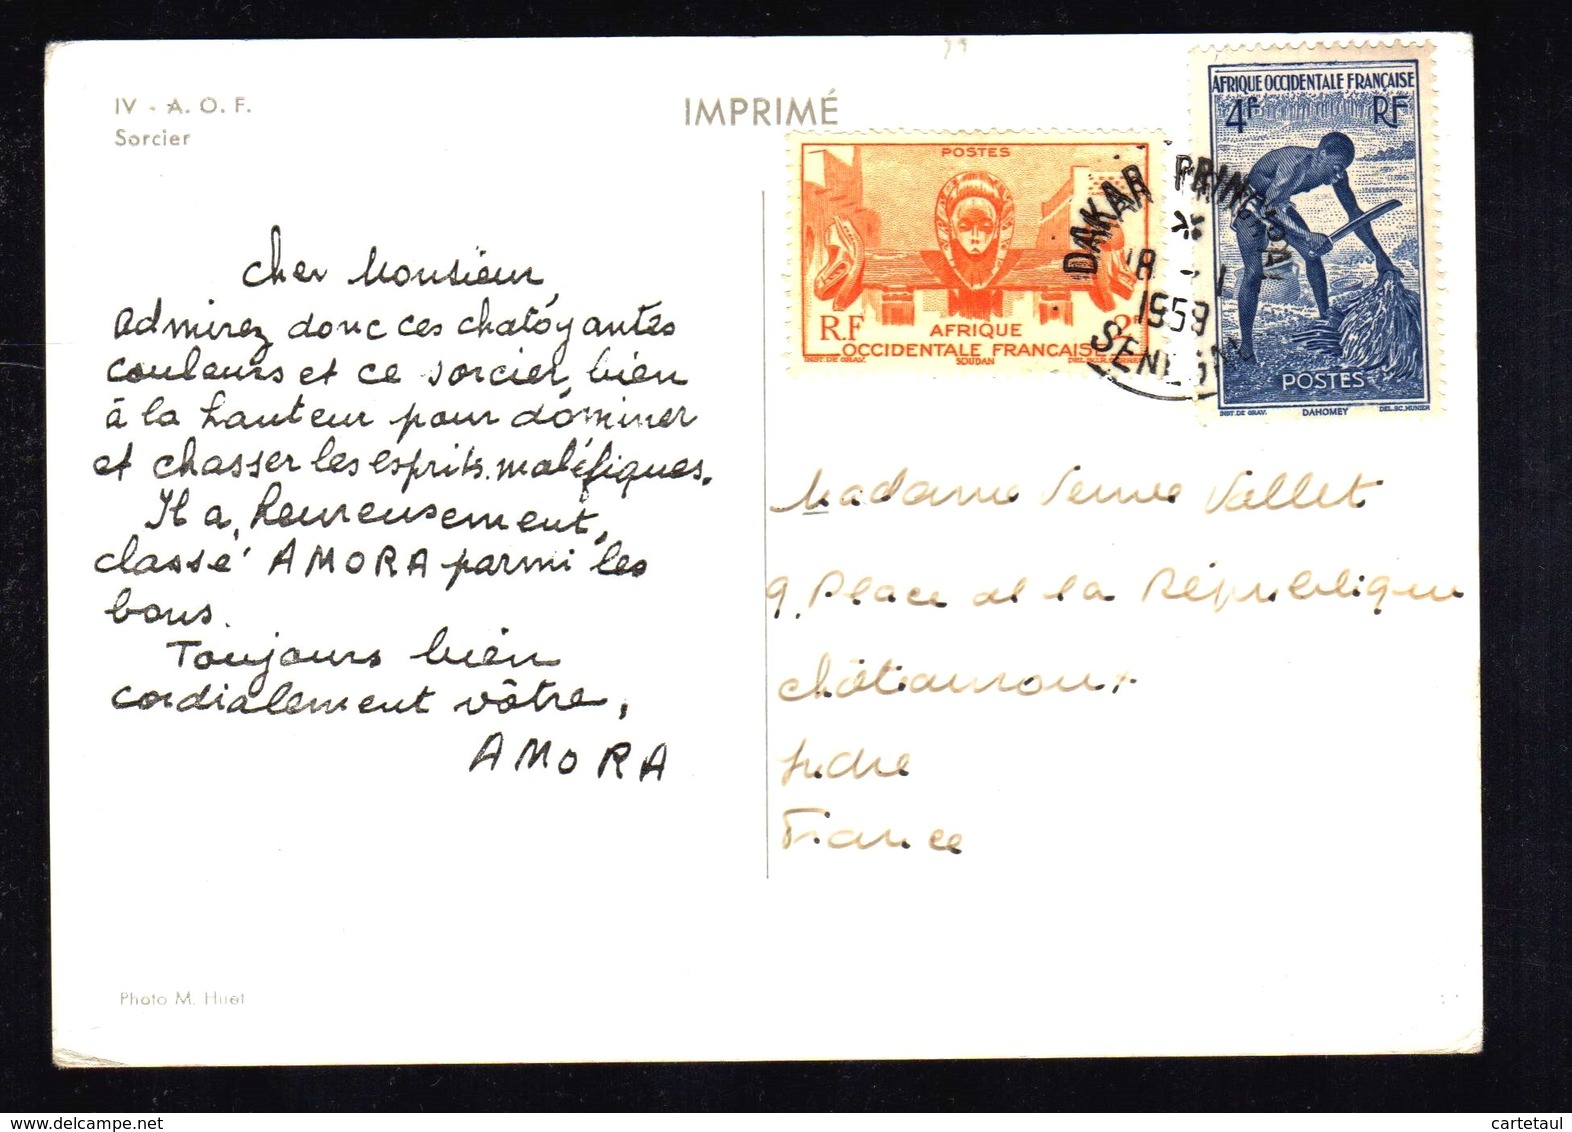 IV - A. O. F.
Sorcier
IMPRIMÉ
POSTES
RF
2F
AFRIQUE
OCCIDENTALE FRANCAISE
INST. DE GRAV.
SOUDAN
AFRIQUE OCCIDENTALE FRANÇAISE
4F
RF
POSTES
INST. DE GRAV.
DAHOMEY
DEL. SC. MUNIER
DAKAR PRINCIPAL
18 - 1
1959
SENEGAL
Cher Monsieur,
Admirez donc ces chatoyantes
couleurs et ce sorcier, bien
à la hauteur pour dominer
et chasser les esprits maléfiques.
Il a, heureusement,
classé AMORA parmi les
bons.
Toujours bien
cordialement vôtre,
AMORA
Madame Vallet
9, Place de la République
Châteauroux
Indre
France
Photo M. Huet
www.delcampe.net
cartetaul